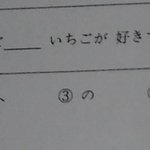 ____ いちごが 好き
③ の